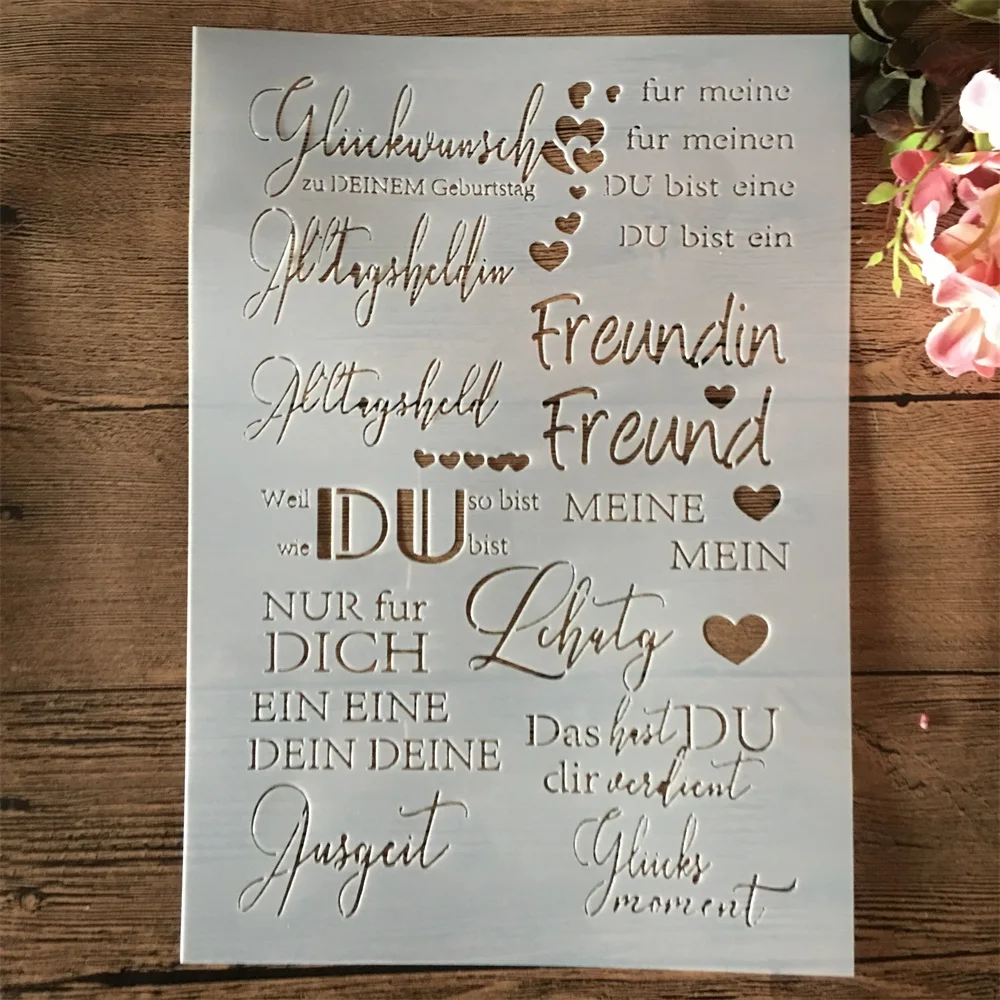 Glückwunsch
zu DEINEM Geburtstag
fur meine
fur meinen
DU bist eine
DU bist ein
Alltagsheldin
Freundin
Alltagsheld
Freund
Weil DU so bist
wie bist
MEINE
MEIN
NUR fur
DICH
Lchatg
EIN EINE
DEIN DEINE
Das hast DU
dir verdient
Auszeit
Glücks
moment